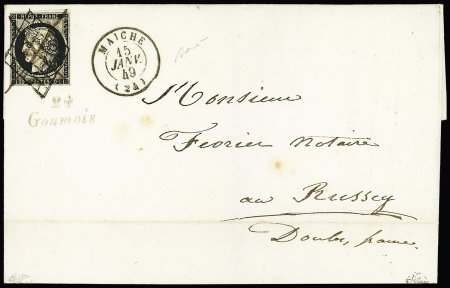 REPUB. FRANC.
MAICHE
15
JANV.
49
(24)
24
Goumois
Monsieur
Fevrier Notaire
au Russey
Doubs, france.